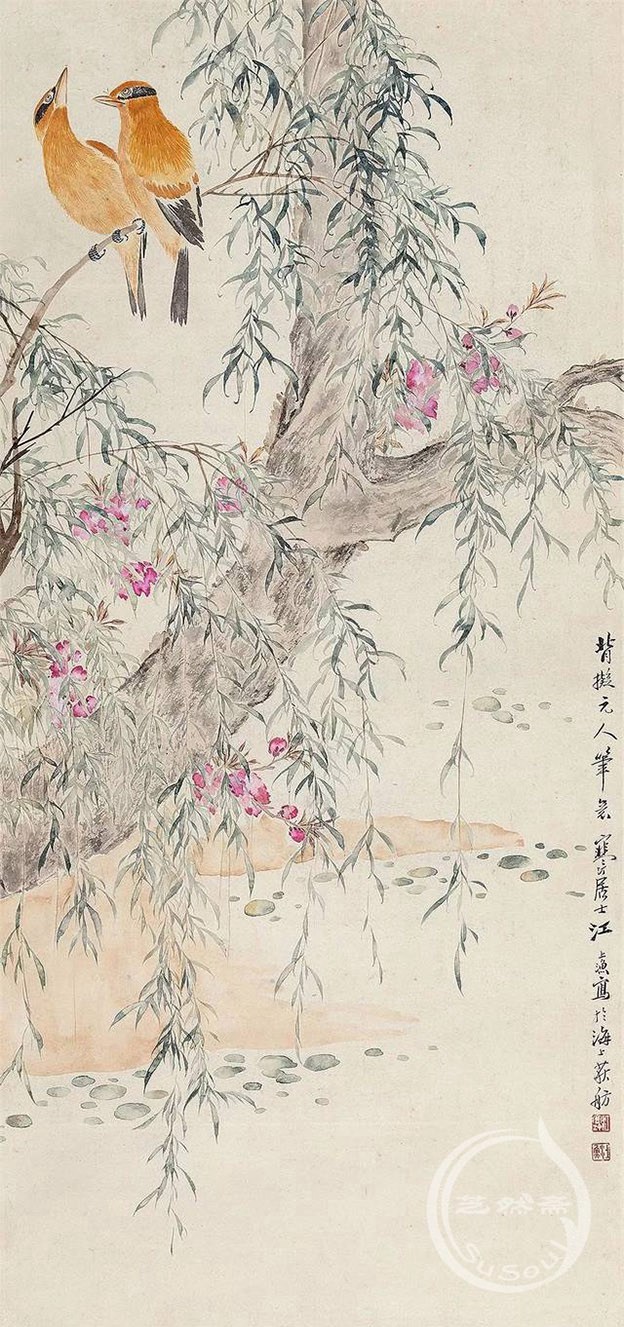 背擬元人筆意寒汀居士江上漁寫於海上荻舫
艺然斋
SuSoul